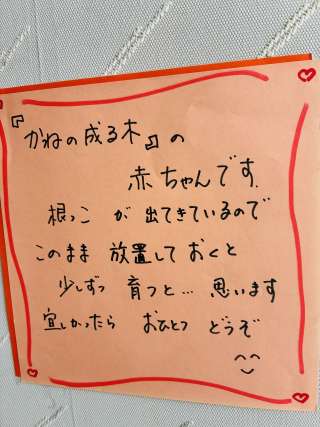 『かねの成る木』の
赤ちゃんです.
根っこ が 出てきているので
このまま 放置して おくと
少しずつ 育つと... 思います
宜しかったら おひとつ どうぞ